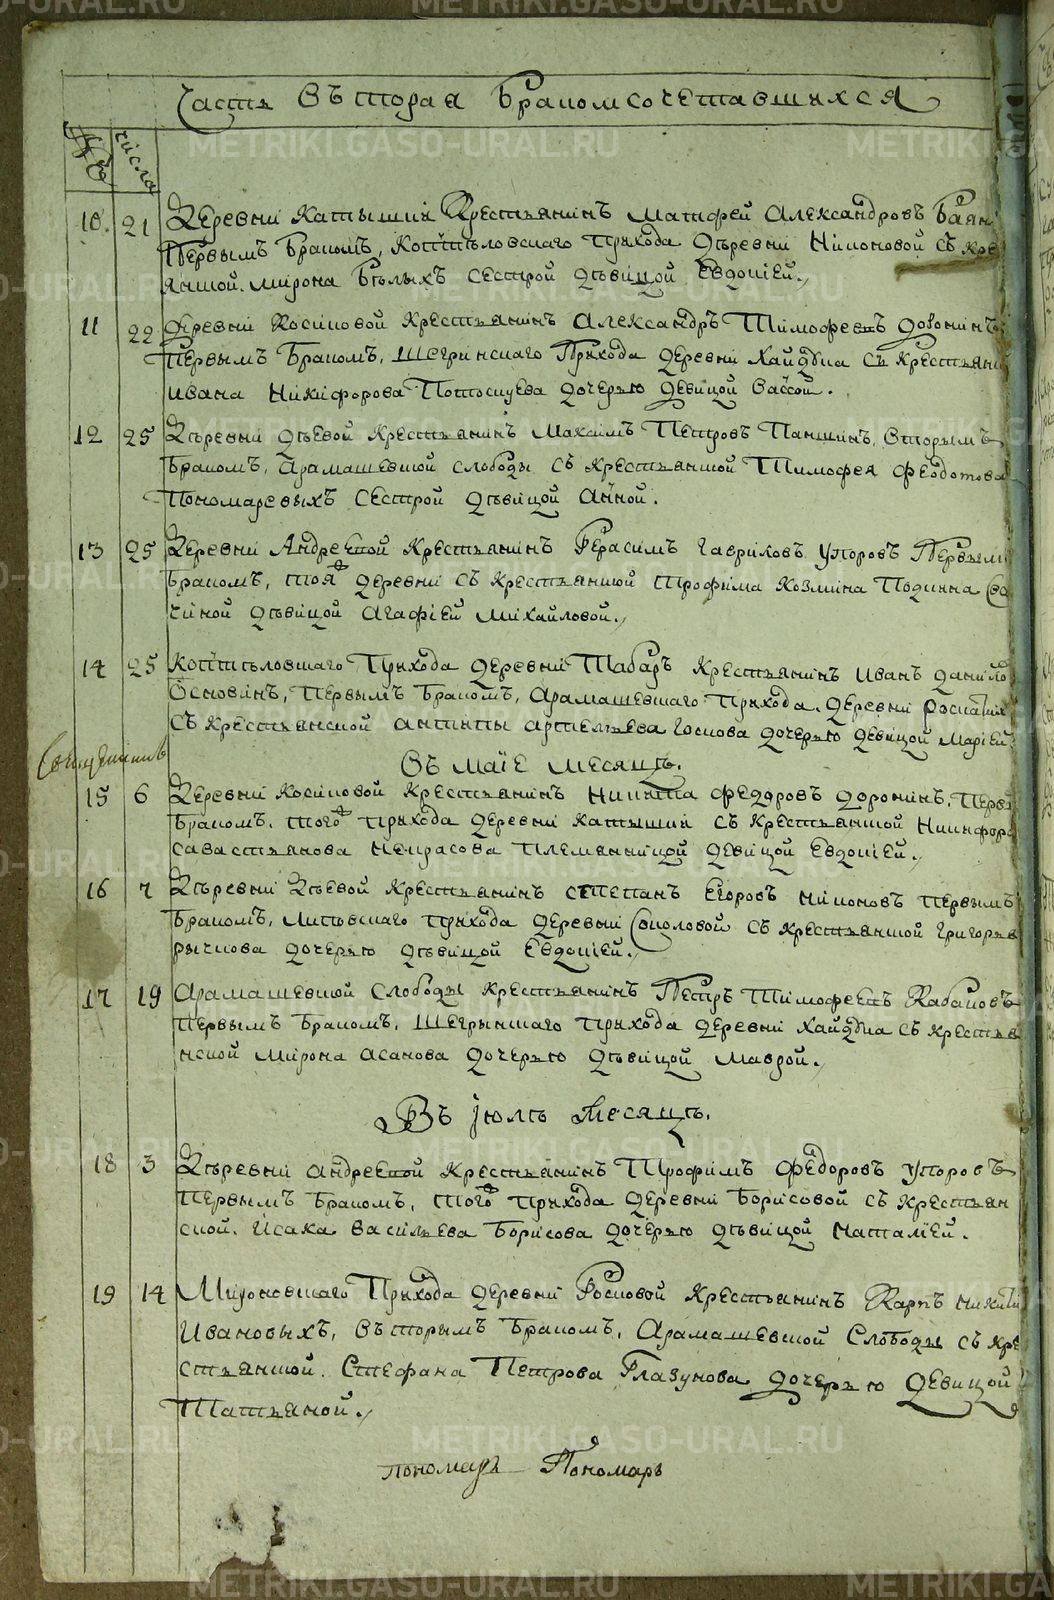 Часть вторая Бракомсочетавшихся
числа
10. 21 Деревни Катышки Крестьянинъ Матфей Александровъ
Первымъ Бракомъ, Коптѣловскаго прихода дѣревни Никоновой съ кре
янкой. Мирона Бѣлыхъ сестрой дѣвицой Евдокіей.,
11 22 Деревни Косиковой крестьянинъ Александръ Тимофеевъ доронинъ
первымъ Бракомъ, Шегринскаго Прихода деревни Хайдука съ Крестьян
Ивана Никифорова Потоскуева дочерью девицой Вассой.
12 25 Дѣревни Дѣевой крестьянинъ Максимъ Петровъ Паншинъ, вторымъ
Бракомъ, Арамашевской слободы съ крестьянкой Тимофея Феодотова
Пономаревыхъ сестрой дѣвицой Анной.
13 25 Деревни Андреевой крестьянинъ Герасимъ Гавриловъ Упоровъ Первым
Бракомъ, тояж деревни съ крестьянкой Трофима Козмина
дѣвицой Агафіей Михайловой.,
14 25 Коптѣловскаго Прихода деревни Таборъ крестьянинъ Иванъ Данило
Основинъ, Первымъ Бракомъ, Арамашевскаго прихода, деревни
съ крестьянской Антипы Артемьева Госкова дочерью девицой Маріей
Въ маіе месяцѣ.
15 6 Деревни Косиковой крестьянинъ Никита Федоровъ доронинъ, перв
Бракомъ, тогож прихода деревни Катышки съ крестьянкой Никифора
Савастьянова Некрасова племянницой девицой Евдокіей.,
16 7 Дѣревни Дѣевой крестьянинъ степанъ Егоровъ Никоновъ первымъ
Бракомъ, Липовскаго прихода деревни Соколовой съ крестьянкой Григорья
рычкова дочерью дѣвицой Евдокіей.,
17 19 Арамашевской Слободы крестьянинъ Петръ Тимофеевъ Кабаковъ
первымъ Бракомъ, Шегрынскаго прихода деревни Хайдука съ крестья
нской Мирона Асанова дочерью дѣвицой Маврой.,
Въ Іюлѣ Месяцѣ.
18 3 Дѣревни Андреевой крестьянинъ Трофимъ Федоровъ Упоровъ
первымъ Бракомъ, тогож прихода деревни Борисовой съ крестьян
ской. Исака Васильева Борисова дочерью дѣвицой Наталіей.
19 14 Мироновскаго Прихода деревни Роскавой крестьянинъ Карпъ Никити
Ивановыхъ, вторымъ Бракомъ, Арамашевской Слободы съ кре
стьянкой. Стефана Петрова Глазунова дочерью девицой
Татьяной.,
пономарь Пономаръ